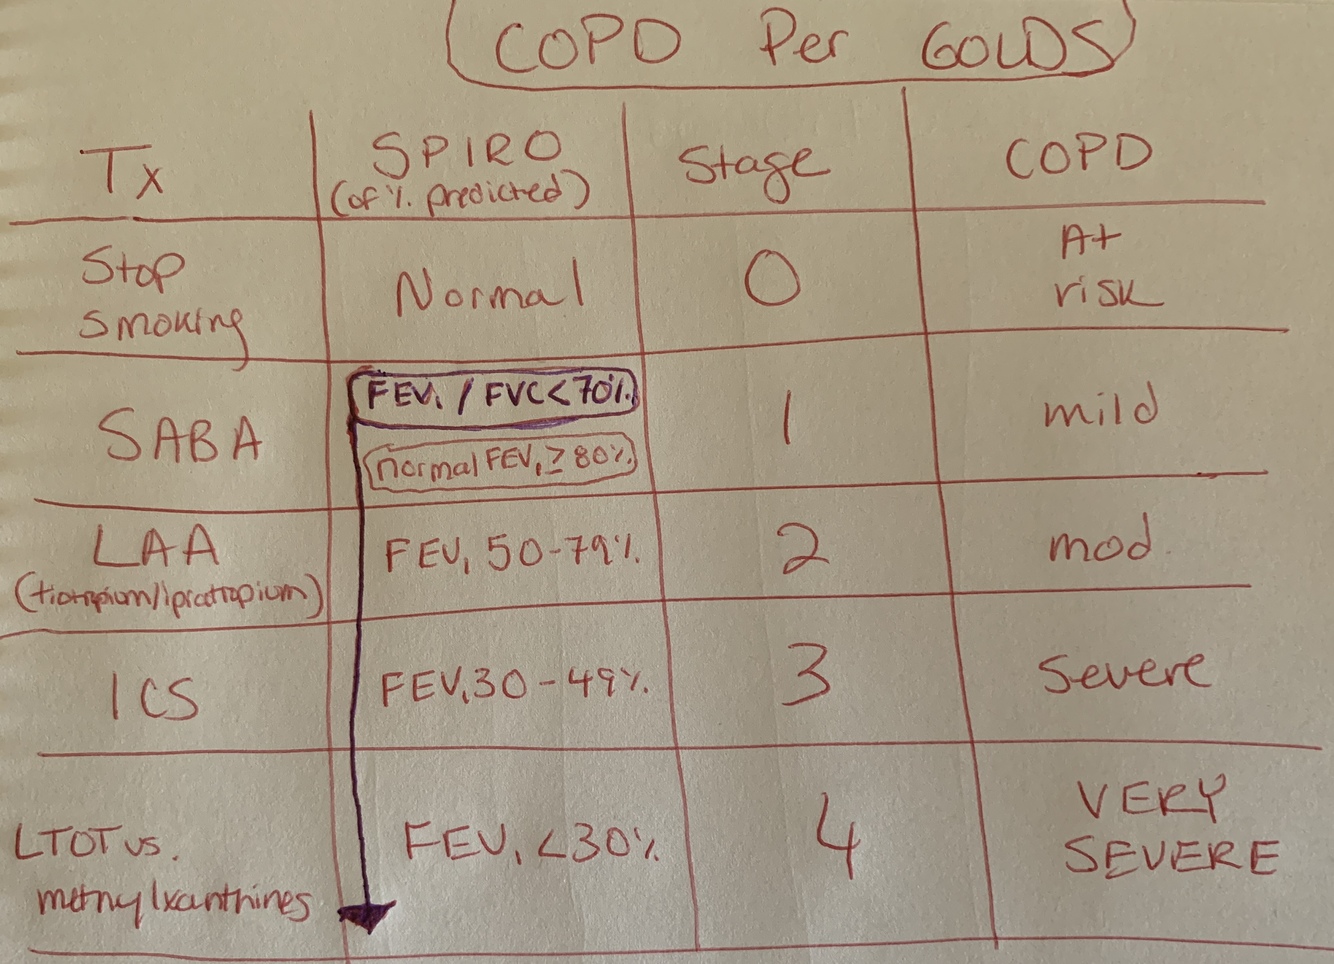 COPD Per GOLDS
Tx
SPIRO
(of % predicted)
Stage
COPD
Stop
smoking
Normal
0
At
risk
SABA
FEV₁ / FVC < 70%
normal FEV₁ ≥ 80%
1
mild
LAA
(tiotropium/ipratropium)
FEV₁ 50-79%
2
mod.
ICS
FEV₁ 30-49%
3
Severe
LTOT vs.
methylxanthines
FEV₁ <30%
4
VERY
SEVERE